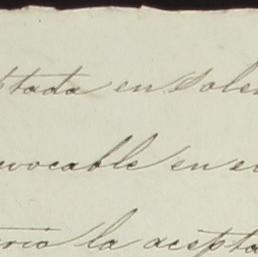 ptada en solem
evocable en el
tario la acepta